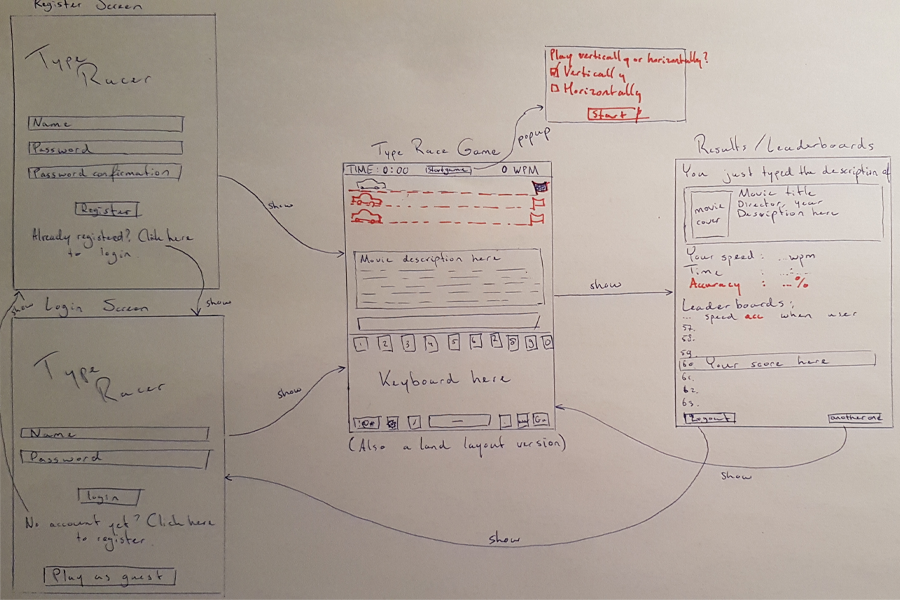 Register Screen
Type
Racer
Name
Password
Password confirmation
Register
Already registeed? Click here
to login
show
show
show
Login Screen
Type
Racer
Name
Password
login
No account yet? Click here
to register.
Play as guest
show
Play vertically or horizontally?
Vertically
Horizontally
Start
popup
Type Race Game
TIME: 0:00 Start game 0 WPM
Movie description here
1 2 3 4 5 6 7 8 9 0
Keyboard here
(Also a land layout version)
show
Results/Leaderboards
You just typed the description of
movie
cover
Movie title
Director, year
Description here
Your speed: ...wpm
Time : ..:..
Accuracy : ...%
Leaderboards:
... speed acc when user
57.
58.
59.
60. Your score here
61.
62.
63.
Logout another one
show
show